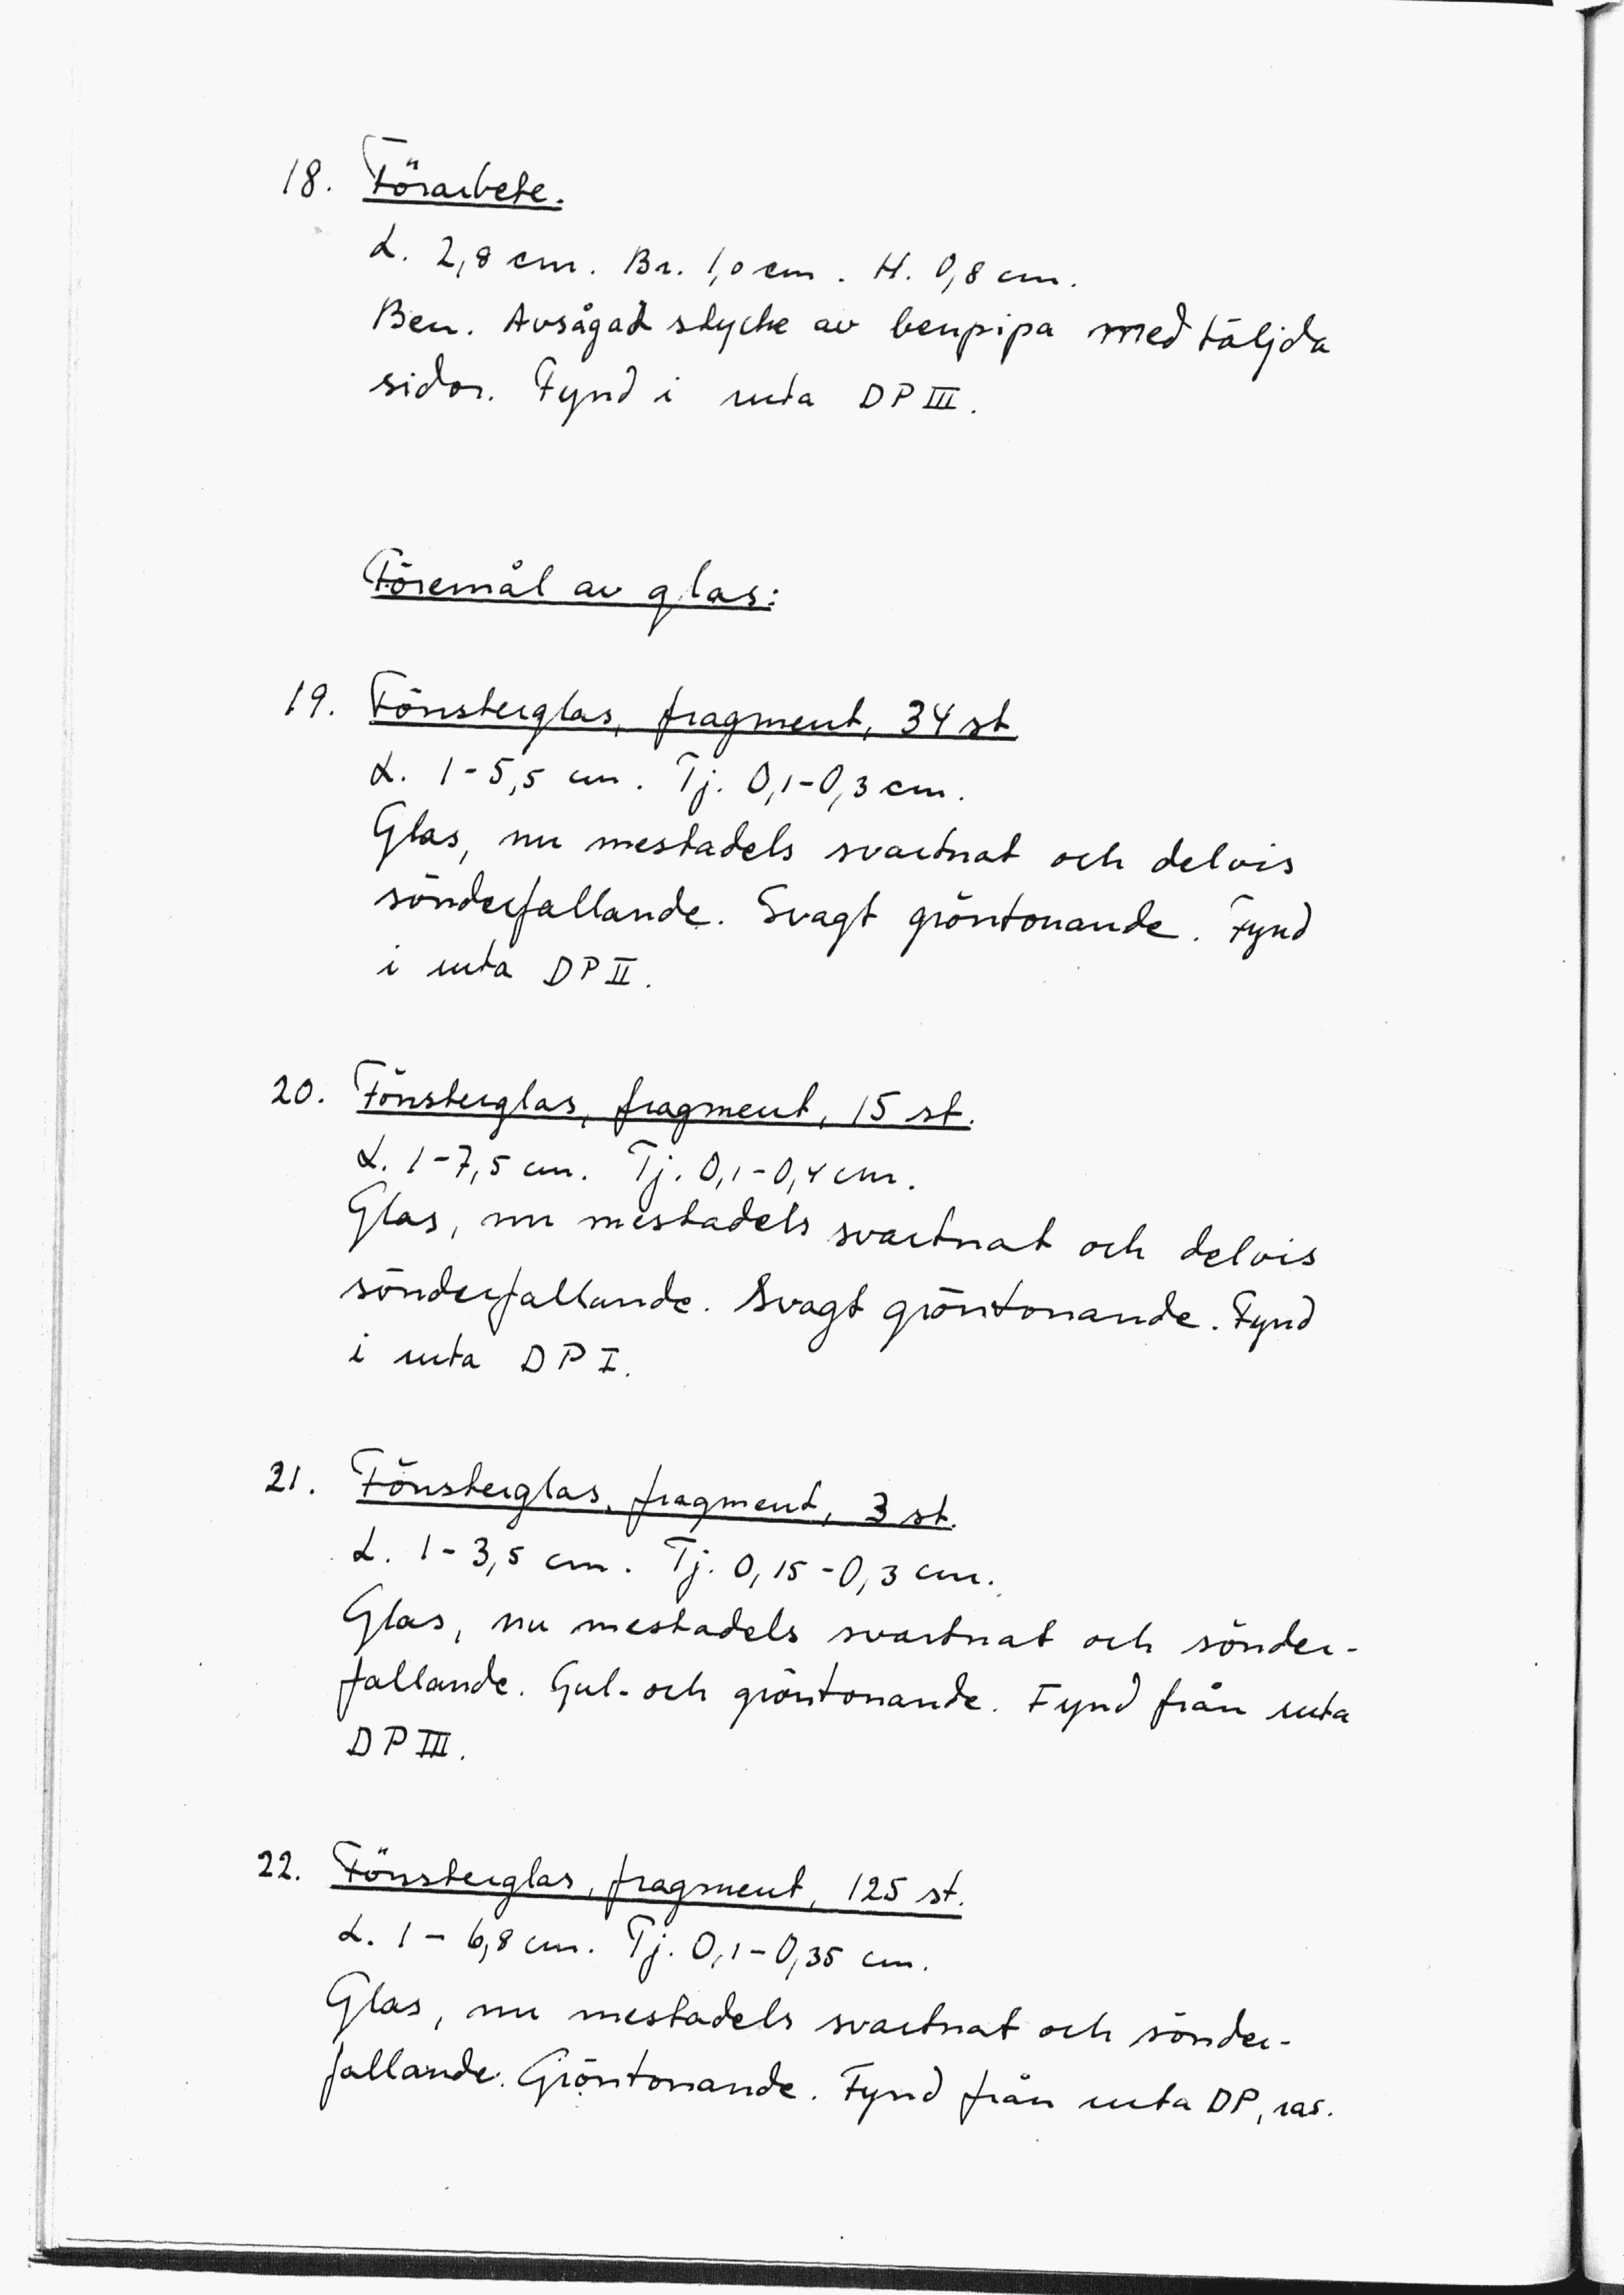 18. Förarbete.
L. 2,8 cm. Br. 1,0 cm. H. 0,8 cm.
Ben. Avsågat stycke av benpipa med täljda
sidor. Fynd i ruta DP III.
Föremål av glas:
19. Fönsterglas, fragment, 34 st
L. 1-5,5 cm. Tj. 0,1-0,3 cm.
Glas, nu mestadels svartnat och delvis
sönderfallande. Svagt gröntonande. Fynd
i ruta DP II.
20. Fönsterglas, fragment, 15 st.
L. 1-7,5 cm. Tj. 0,1-0,4 cm.
Glas, nu mestadels svartnat och delvis
sönderfallande. Svagt gröntonande. Fynd
i ruta DP I.
21. Fönsterglas, fragment, 3 st.
L. 1-3,5 cm. Tj. 0,15-0,3 cm.
Glas, nu mestadels svartnat och sönder-
fallande. Gul- och gröntonande. Fynd från ruta
DP III.
22. Fönsterglas, fragment, 125 st.
L. 1-6,8 cm. Tj. 0,1-0,35 cm.
Glas, nu mestadels svartnat och sönder-
fallande. Gröntonande. Fynd från ruta DP, ras.